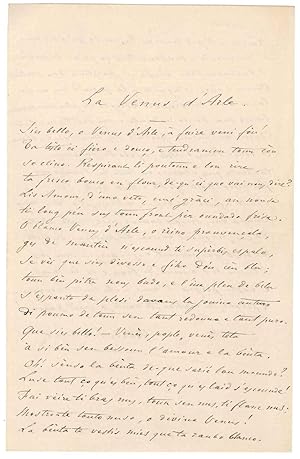 La Venus d'Arle.
Siés bello, o Venus d'Arle, à faire veni fòu!
Ta tèsto èi fièro e douço, e tendramen toun còu
se clino. Respirant li poutoun e lou rire
ta fresco bouco en flour, de-qu'èi que vai nous dire?
Lis Amour, d'uno veto, emé gràci, an nousa
ti long péu sus toun front pèr oundado frisa.
O blanco Venus d'Arle, o rèino prouvençalo,
ges de mantèu n'escound ti supèrbis espalo;
Se vèi que siés divesso e fiho dóu cèu blu;
toun bèu pitre nous bado, e l'iue plen de belu
s'espanto de plesi davans la jouino auturo
di poumo de toun sen tant redouno e tant puro.
Que siés bello! — Venès, pople, venès, teta
à si bèu sen bessoun l'amour e la bèuta.
Oh! sènso la bèuta de-que sarié lou mounde?
Luse tout ço qu'es bèu, tout ço qu'es laid s'escounde!
Fai vèire ti bras nus, toun sen nus, ti flanc nus:
Mostro-te touto nuso, o divino Venus!
La bèuta te vestis miés que ta raubo blanco.